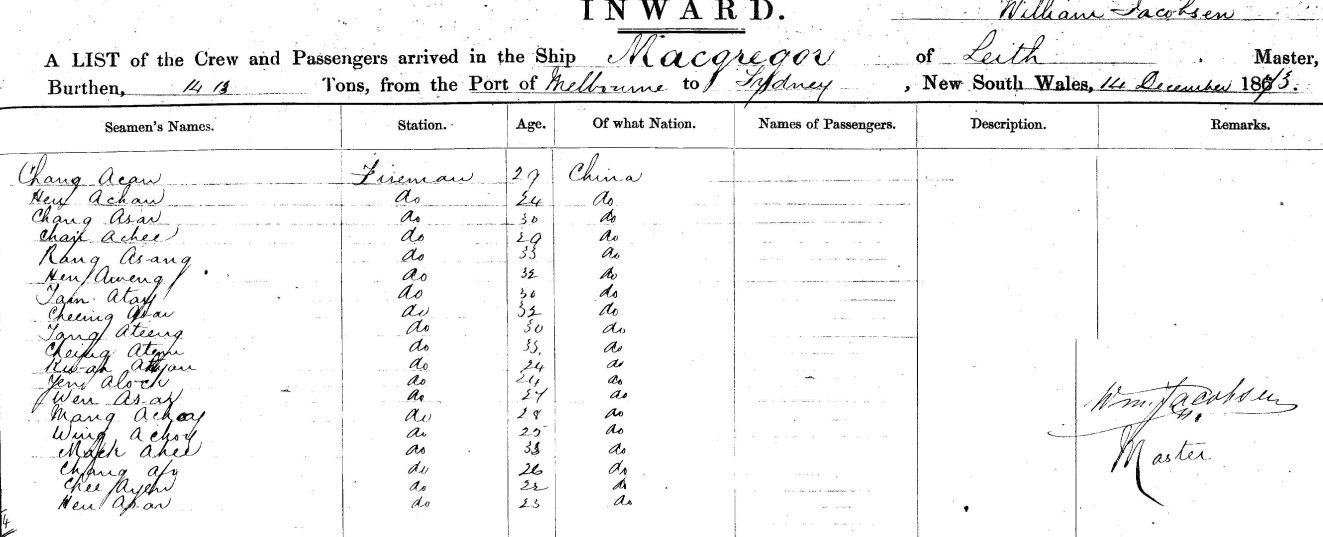 INWARD.
William Jacobsen
A LIST of the Crew and Passengers arrived in the Ship Macgregor of Leith Master,
Burthen, 1413 Tons, from the Port of Melbourne to Sydney, New South Wales, 14 December 1873.
Seamen's Names. Station. Age. Of what Nation. Names of Passengers. Description. Remarks.
Chang Acan Fireman 29 China
Hen Achan do 24 do
Chang Asan do 30 do
Achee do 29 do
Rang Asang do 33 do
Hen Aweng do 32 do
Tam Atay do 30 do
Cheeing Asan do 32 do
Tang Ateeng do 30 do
Cheing do 33 do
do 24 do
Yen Alock do 24 do
Wen Asay do 27 do
Mang Achoy do 28 do
Wing Achoy do 25 do
Mack Ahee do 33 do
Chang do 26 do
Chee Ayen do 22 do
Hen do 23 do
Wm. Jacobsen
Master
4